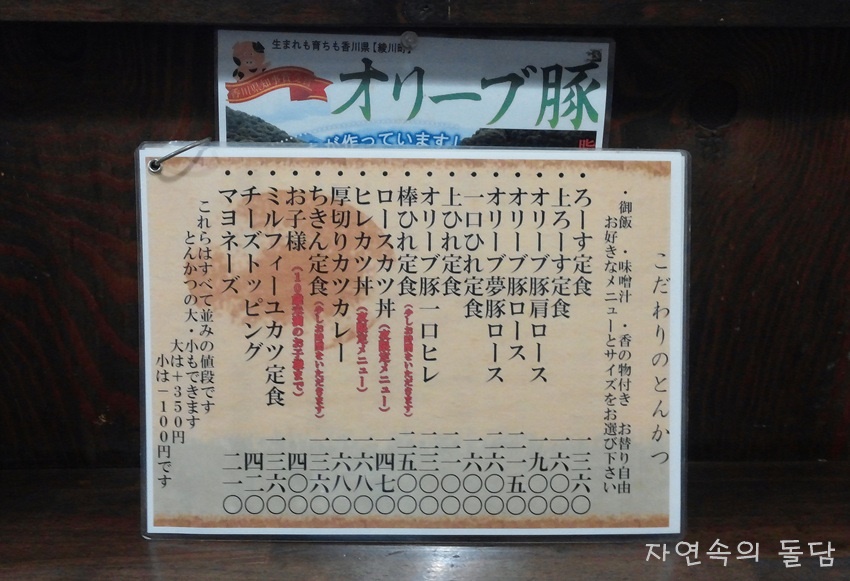 生まれも育ちも香川県【綾川町】
オリーブ豚
が作っています!
こだわりのとんかつ
・御飯 ・味噌汁 ・香の物付き お替り自由
お好きなメニューとサイズをお選び下さい
・ろーす定食 一三六〇
・上ろーす定食 一六〇〇
・オリーブ豚肩ロース 一九〇〇
・オリーブ豚ロース 二一五〇
・オリーブ夢豚ロース 二六〇〇
・一口ひれ定食 一六〇〇
・上ひれ定食 二一〇〇
・オリーブ豚一口ヒレ 二三〇〇
・棒ひれ定食(少しお時間をいただきます) 二五〇〇
・ロースカツ丼(夜限定メニュー) 一四七〇
・ヒレカツ丼(夜限定メニュー) 一六八〇
・厚切りカツカレー 一六八〇
・ちきん定食(少しお時間をいただきます) 一三六〇
・お子様(10歳未満のお子様まで)
・ミルフィーユカツ定食 一三六〇
・チーズトッピング 四二〇
・マヨネーズ 二一〇
これらはすべて並みの値段です
とんかつの大・小もできます
大は+350円
小は-100円です
자연속의 돌담